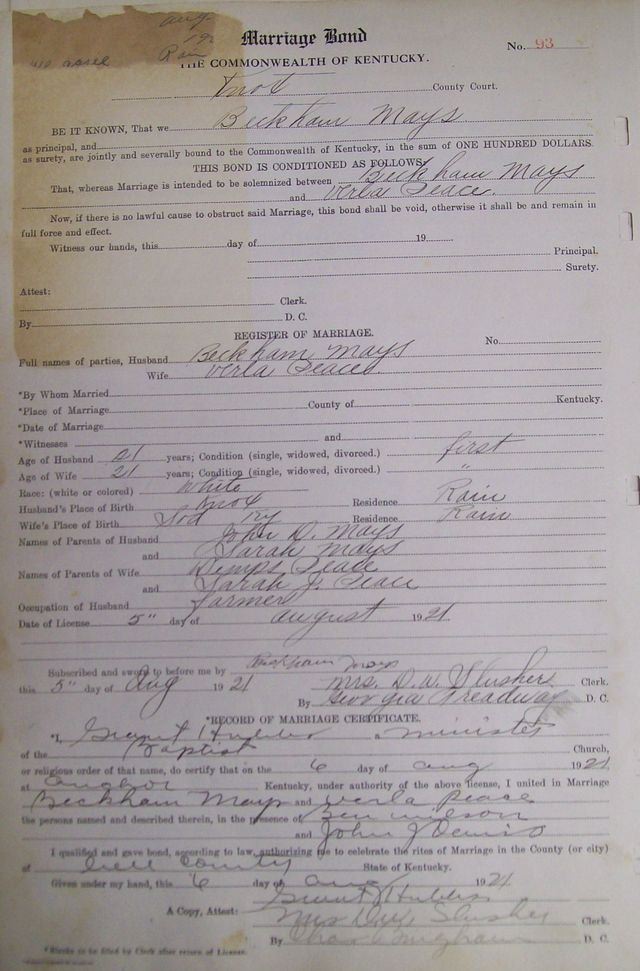 aug
Rain
Marriage Bond
No. 93
THE COMMONWEALTH OF KENTUCKY.
Knox County Court.
BE IT KNOWN, That we Beckham Mays
as principal, and
as surety, are jointly and severally bound to the Commonwealth of Kentucky, in the sum of ONE HUNDRED DOLLARS.
THIS BOND IS CONDITIONED AS FOLLOWS
That, whereas Marriage is intended to be solemnized between Beckham Mays
and Verla Peace.
Now, if there is no lawful cause to obstruct said Marriage, this bond shall be void, otherwise it shall be and remain in
full force and effect.
Witness our hands, this day of 19
Principal.
Surety.
Attest:
Clerk.
By D. C.
REGISTER OF MARRIAGE.
No.
Full names of parties, Husband Beckham Mays
Wife Verla Peace
*By Whom Married
*Place of Marriage County of Kentucky.
*Date of Marriage
*Witnesses and
Age of Husband 21 years; Condition (single, widowed, divorced.) first
Age of Wife 21 years; Condition (single, widowed, divorced.) "
Race: (white or colored) White
Husband's Place of Birth Knox Residence Rain
Wife's Place of Birth Ky Residence Rain
Names of Parents of Husband John D. Mays
and Sarah Mays
Names of Parents of Wife Dimps Peace
and Sarah J. Peace
Occupation of Husband farmer
Date of License 5" day of august 1921
Subscribed and sworn to before me by Beckham Mays
this 5" day of Aug 1921 Mrs. D. W. Slusher Clerk.
By Georgia Treadway D. C.
*RECORD OF MARRIAGE CERTIFICATE.
"I, Grant Hubbs a minister
of the Baptist Church,
or religious order of that name, do certify that on the 6 day of aug 1921
at Kentucky, under authority of the above license, I united in Marriage
Beckham Mays and Verla Peace
the persons named and described therein, in the presence of Ben Wilson
and John
I qualified and gave bond, according to law, authorizing me to celebrate the rites of Marriage in the County (or city)
of County State of Kentucky.
Given under my hand, this 6 day of aug 1921
Grant Hubbs
A Copy, Attest: Mrs D W Slusher Clerk.
By Bingham D. C.
*Blanks to be filed by Clerk after return of License.